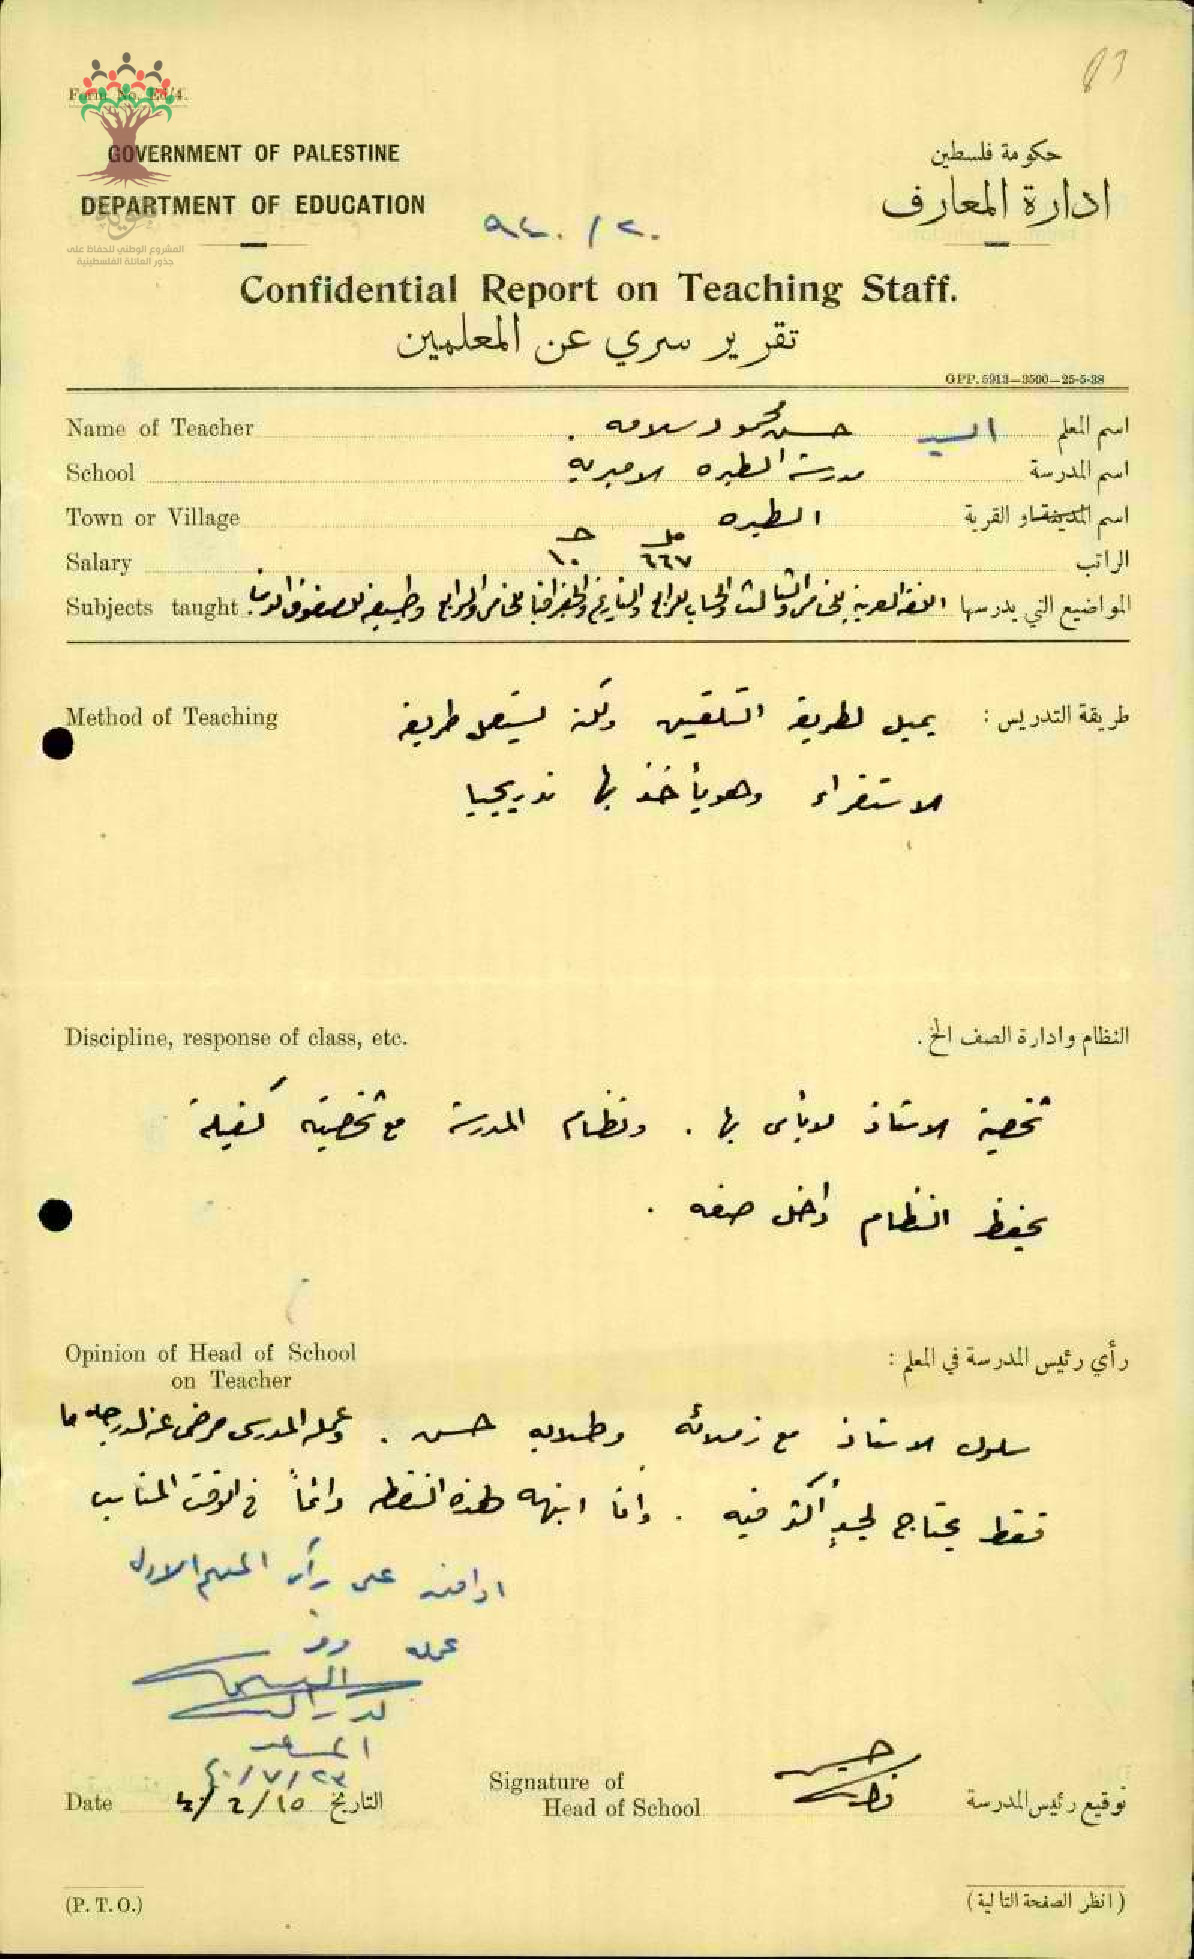 Form No. Ed/4.
GOVERNMENT OF PALESTINE
حكومة فلسطين
DEPARTMENT OF EDUCATION
ادارة المعارف
المشروع الوطني للحفاظ على
جذور العائلة الفلسطينية
Confidential Report on Teaching Staff.
تقرير سري عن المعلمين
GPP. 5913—3500—25-5-38
Name of Teacher السيد حسن محمود سلامه . اسم المعلم
School مدرسة الطيره الاميرية اسم المدرسة
Town or Village الطيره اسم المدينة او القرية
Salary ٦٦٧ مل ١٠ ج الراتب
Subjects taught اللغة العربية للخامس والثالث والحساب للرابع والتاريخ والجغرافيا للخامس والرابع وطبيعة للصفوف الدنيا. المواضيع التي يدرسها
Method of Teaching طريقة التدريس :
يميل لطريقة التلقين ولكنه يستعمل طريقة
الاستقراء وهو يأخذ بها تدريجيا
Discipline, response of class, etc. النظام وادارة الصف الخ .
شخصية الاستاذ لا بأس بها . ونظام المدرسة مع شخصيته كفيلة
بحفظ النظام داخل صفه .
Opinion of Head of School
on Teacher
رأي رئيس المدرسة في المعلم :
سلوك الاستاذ مع زملائه وطلابه حسن . وعمله المدرسي مرضي عنه لدرجة ما
فقط يحتاج لجد أكثر فيه . وانا انبهه لهذه النقطه دائماً في الوقت المناسب
اوافق على رأي المعلم الاول
عمله
المساعد
٢٣/٧/٤٠
Date ١٥/٤/٤٠ التاريخ
Signature of
Head of School
توقيع رئيس المدرسة
(P. T. O.)
( انظر الصفحة التالية )